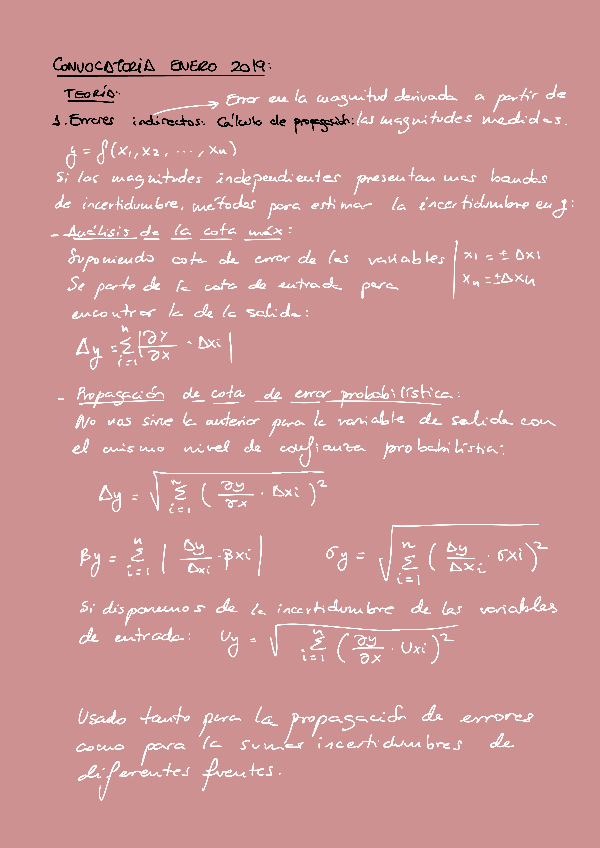 CONVOCATORIA ENERO 2019:
TEORÍA:
→ Error en la magnitud derivada a partir de
1. Errores indirectos: Cálculo de propagación: las magnitudes medidas.
y = f(x1, x2, ..., xn)
Si las magnitudes independientes presentan unas bandas
de incertidumbre, métodos para estimar la incertidumbre en y:
- Análisis de la cota máx:
Suponiendo cota de error de las variables | x1 = ± Δx1
Se parte de la cota de entrada para | xn = ± Δxn
encontrar la de la salida:
Δy = Σ_{i=1}^{n} |∂y/∂x · Δxi|
- Propagación de cota de error probabilística:
No nos sirve la anterior para la variable de salida con
el mismo nivel de confianza probabilística:
Δy = √(Σ_{i=1}^{n} (∂y/∂x · Δxi)²)
βy = Σ_{i=1}^{n} |Δy/Δxi · βxi| σy = √(Σ_{i=1}^{n} (Δy/Δxi · σxi)²)
Si disponemos de la incertidumbre de las variables
de entrada: Uy = √(Σ_{i=1}^{n} (∂y/∂x · Uxi)²)
Usado tanto para la propagación de errores
como para la sumas incertidumbres de
diferentes fuentes.